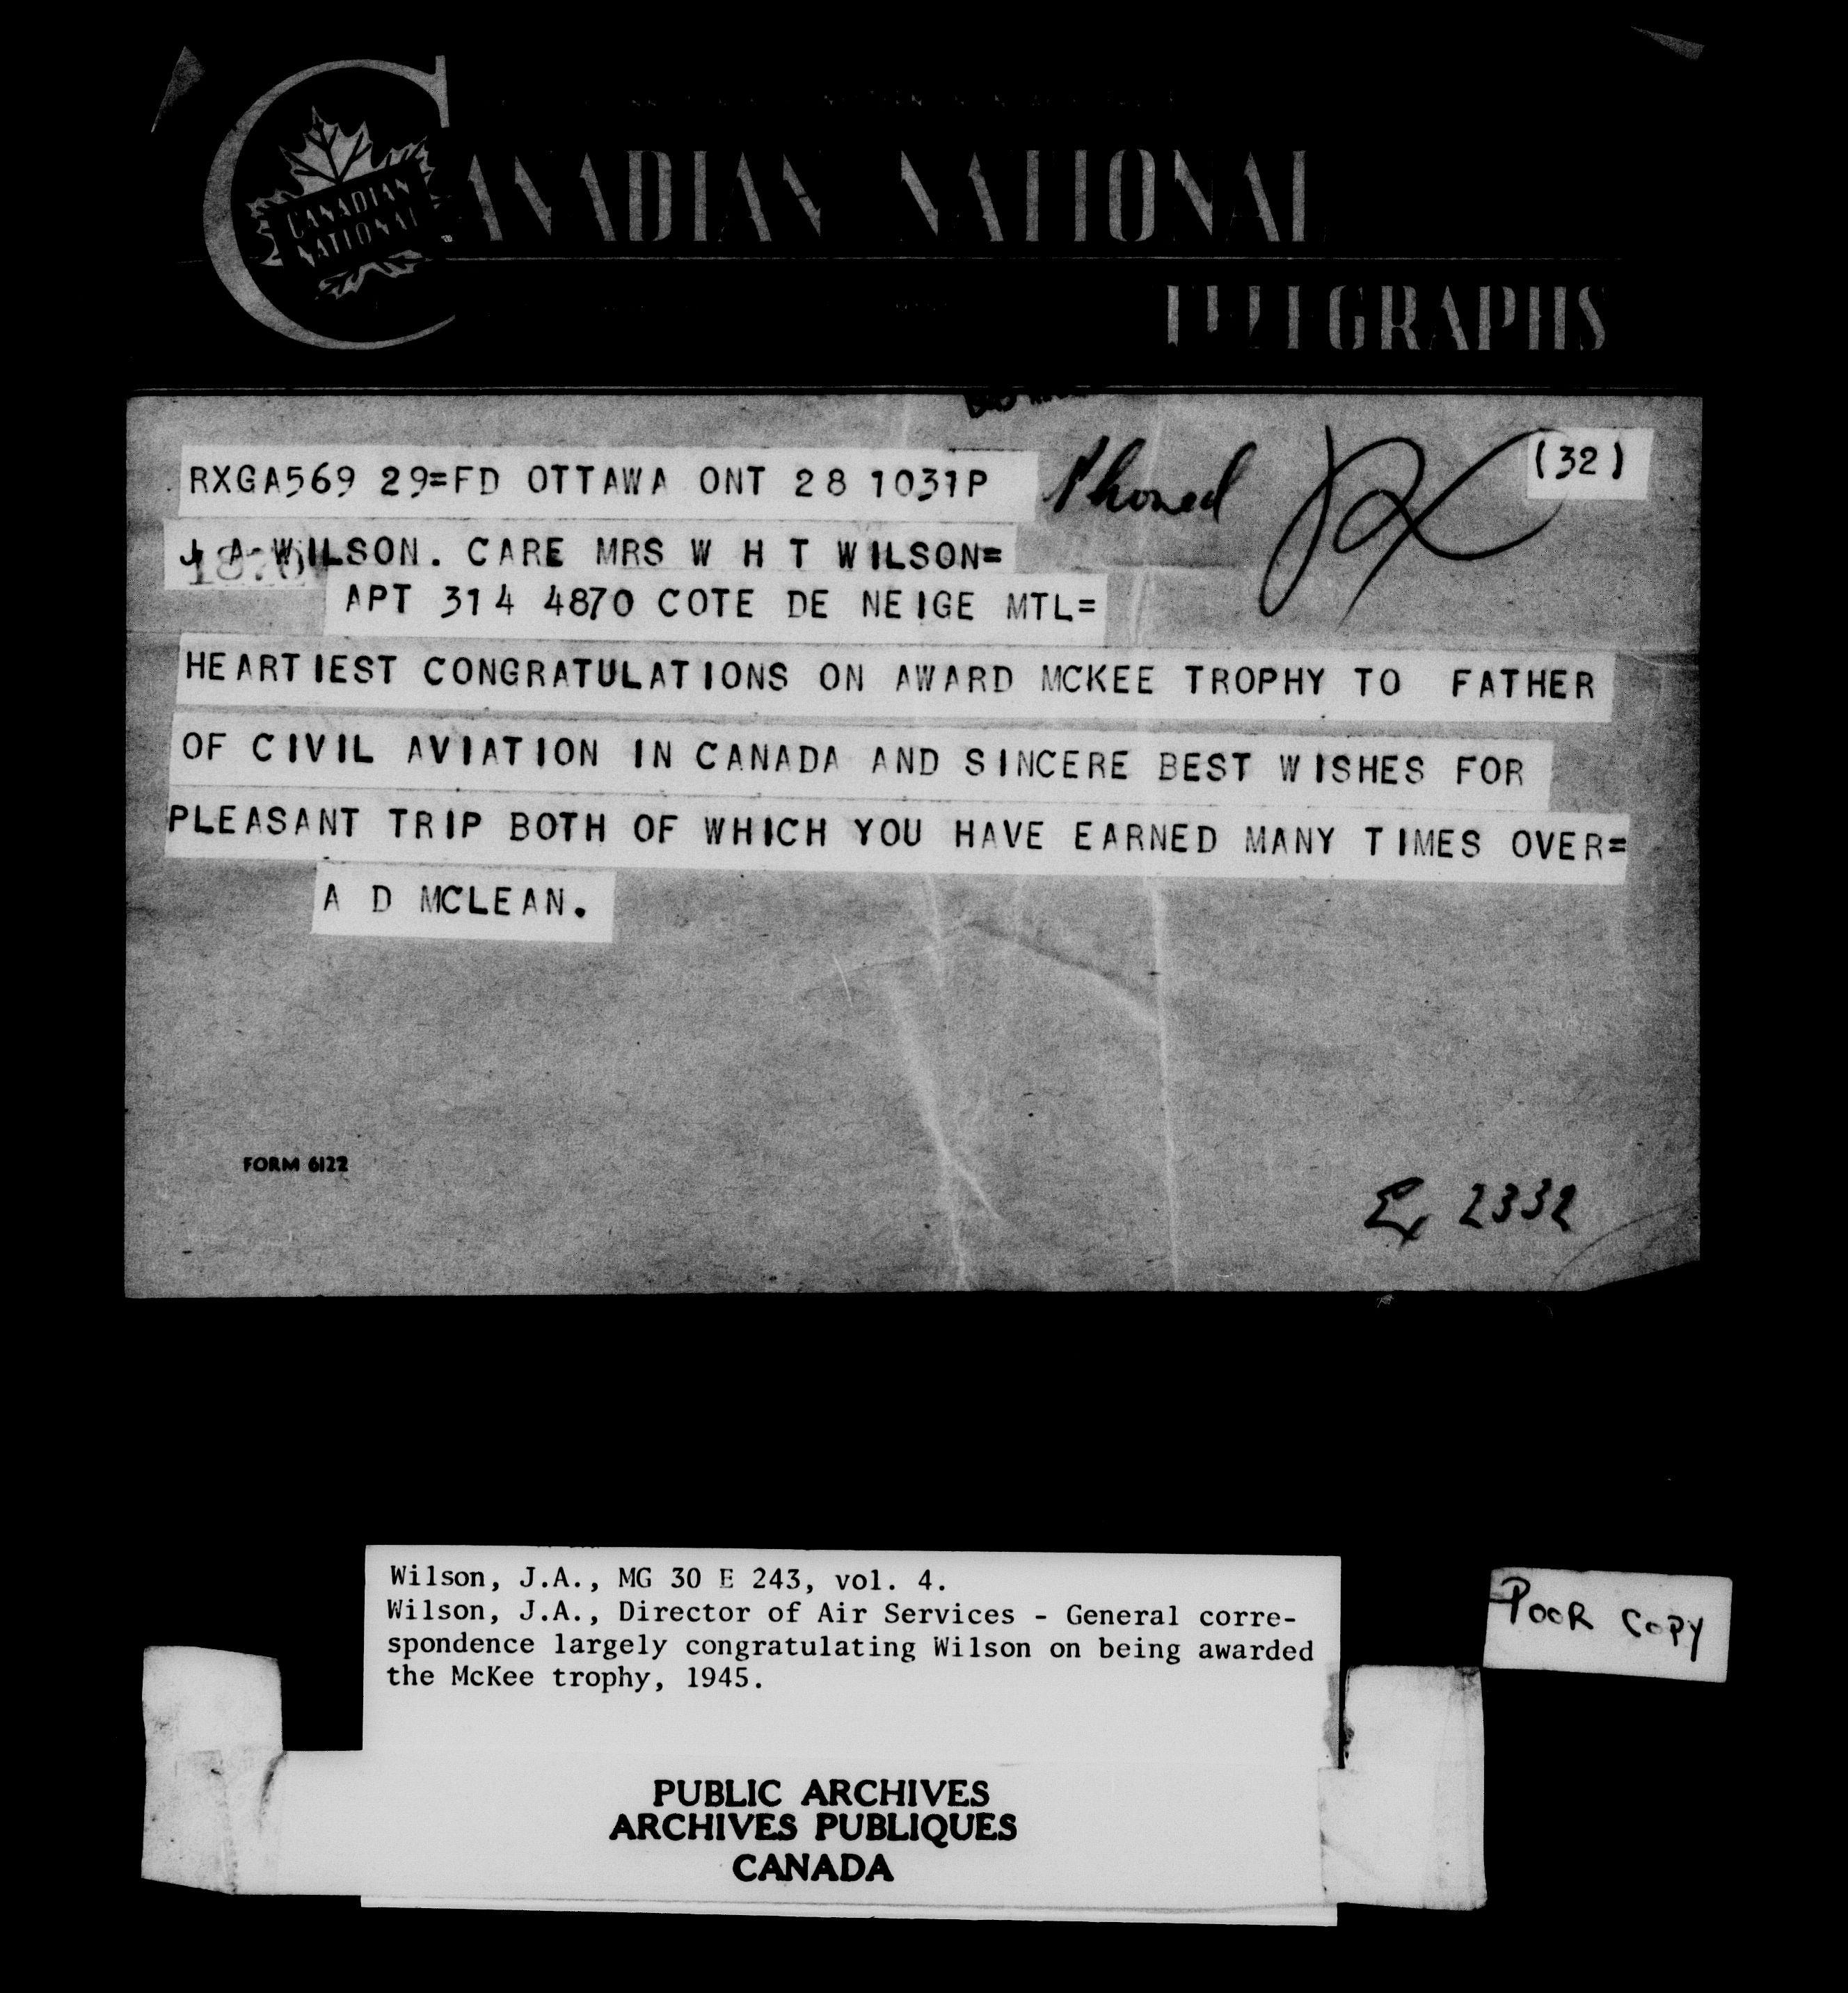 CANADIAN NATIONAL
CANADIAN
NATIONAL
TELEGRAPHS
RXGA569 29=FD OTTAWA ONT 28 1031P
Phoned
(32)
J A WILSON. CARE MRS W H T WILSON=
APT 314 4870 COTE DE NEIGE MTL=
HEARTIEST CONGRATULATIONS ON AWARD MCKEE TROPHY TO FATHER
OF CIVIL AVIATION IN CANADA AND SINCERE BEST WISHES FOR
PLEASANT TRIP BOTH OF WHICH YOU HAVE EARNED MANY TIMES OVER=
A D MCLEAN.
FORM 6122
Ex 2332
Wilson, J.A., MG 30 E 243, vol. 4.
Wilson, J.A., Director of Air Services - General corre-
spondence largely congratulating Wilson on being awarded
the McKee trophy, 1945.
POOR COPY
PUBLIC ARCHIVES
ARCHIVES PUBLIQUES
CANADA